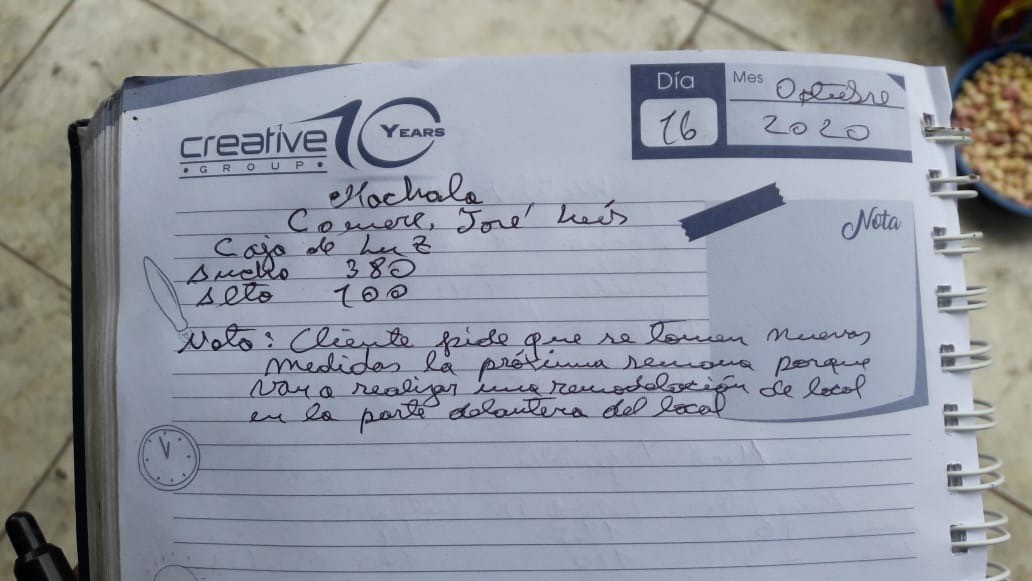 creative
GROUP
10 YEARS
Día
16
Mes Octubre
2020
Machala
José Luís
Caja de Luz
Ancho 380
Alto 100
Nota
Nota: Cliente pide que se tomen nuevas
medidas la próxima semana porque
van a realizar una remodelación de local
en la parte delantera del local